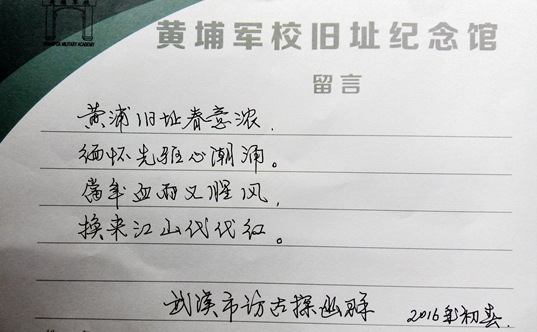 黄埔军校旧址纪念馆
留言
黄浦旧址春意浓，
缅怀先驱心潮涌。
当年血雨又腥风，
换来江山代代红。
武汉市访古探幽
2016年初春.